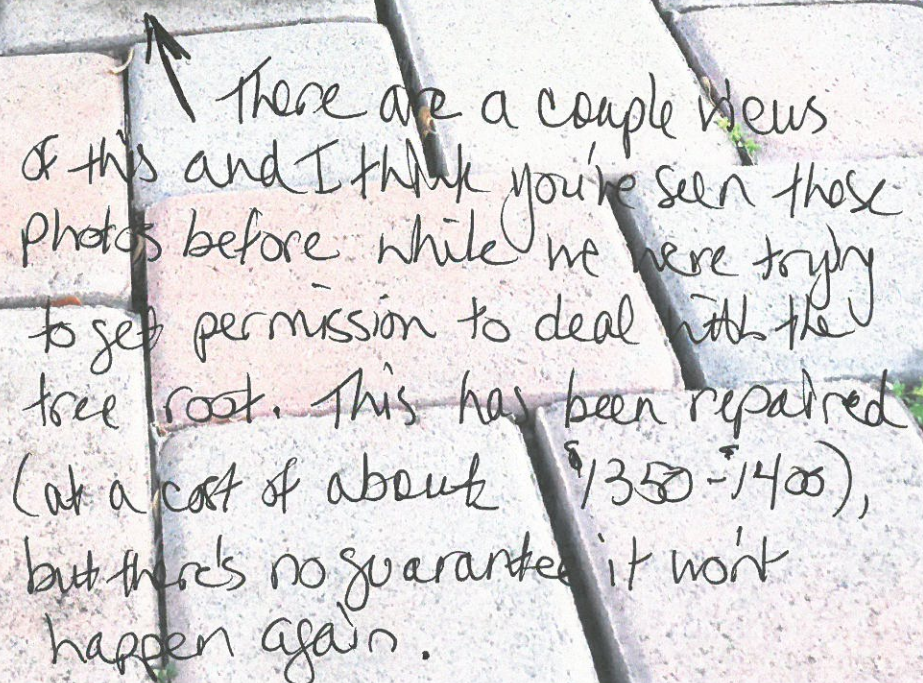 There are a couple views
of this and I think you've seen those
photos before while we were trying
to get permission to deal with the
tree root. This has been repaired
(at a cost of about $1350-$1400),
but there's no guarantee it won't
happen again.